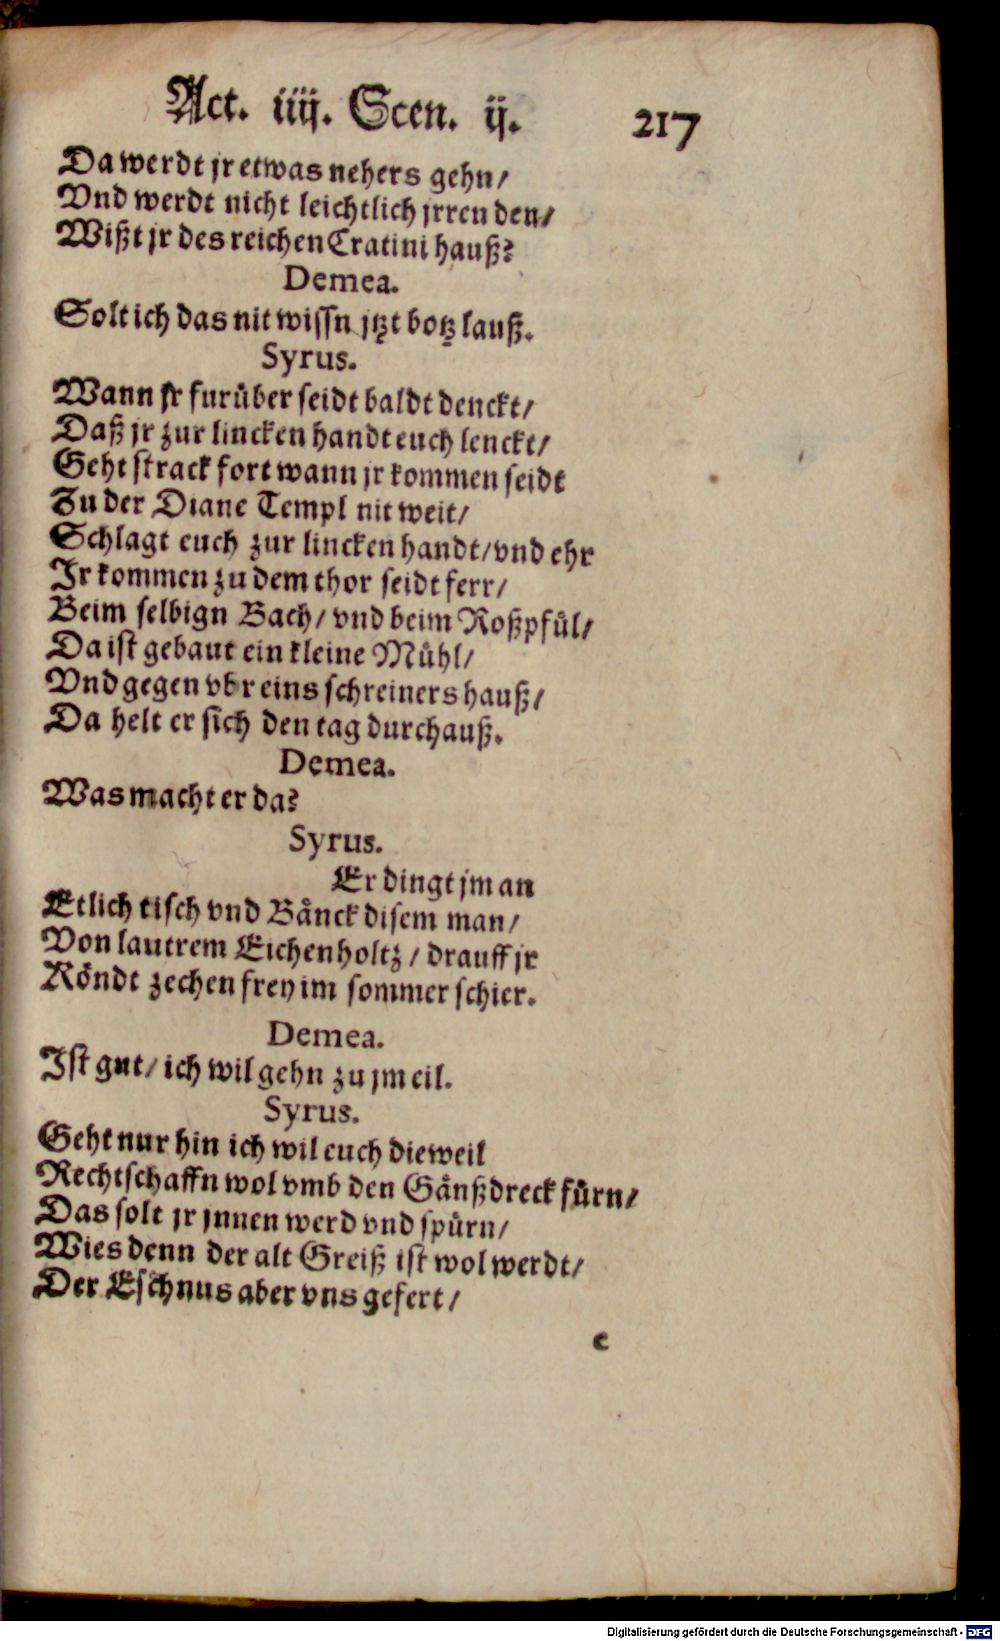 Act. iiij. Scen. ij. 217
Da werdt jr etwas nehers gehn/
Vnd werdt nicht leichtlich jrren den/
Wißt jr des reichen Cratini hauß?
Demea.
Solt ich das nit wissn jtzt botz lauß.
Syrus.
Wann jr furüber seidt baldt denckt/
Daß jr zur lincken handt euch lenckt/
Geht strack fort wann jr kommen seidt
Zu der Diane Templ nit weit/
Schlagt euch zur lincken handt/vnd ehr
Jr kommen zu dem thor seidt ferr/
Beim selbign Bach/ vnd beim Roßpfül/
Da ist gebaut ein kleine Mühl/
Vnd gegen vbr eins schreiners hauß/
Da helt er sich den tag durchauß.
Demea.
Was macht er da?
Syrus.
Er dingt jm an
Etlich tisch vnd Bänck disem man/
Von lautrem Eichenholtz/ drauff jr
Köndt zechen frey im sommer schier.
Demea.
Jst gut/ ich wil gehn zu jm eil.
Syrus.
Geht nur hin ich wil euch dieweil
Rechtschaffn wol vmb den Gänßdreck fürn/
Das solt jr jnnen werd vnd spürn/
Wies denn der alt Greiß ist wol werdt/
Der Eschnus aber vns gefert/
e
Digitalisierung gefördert durch die Deutsche Forschungsgemeinschaft - DFG